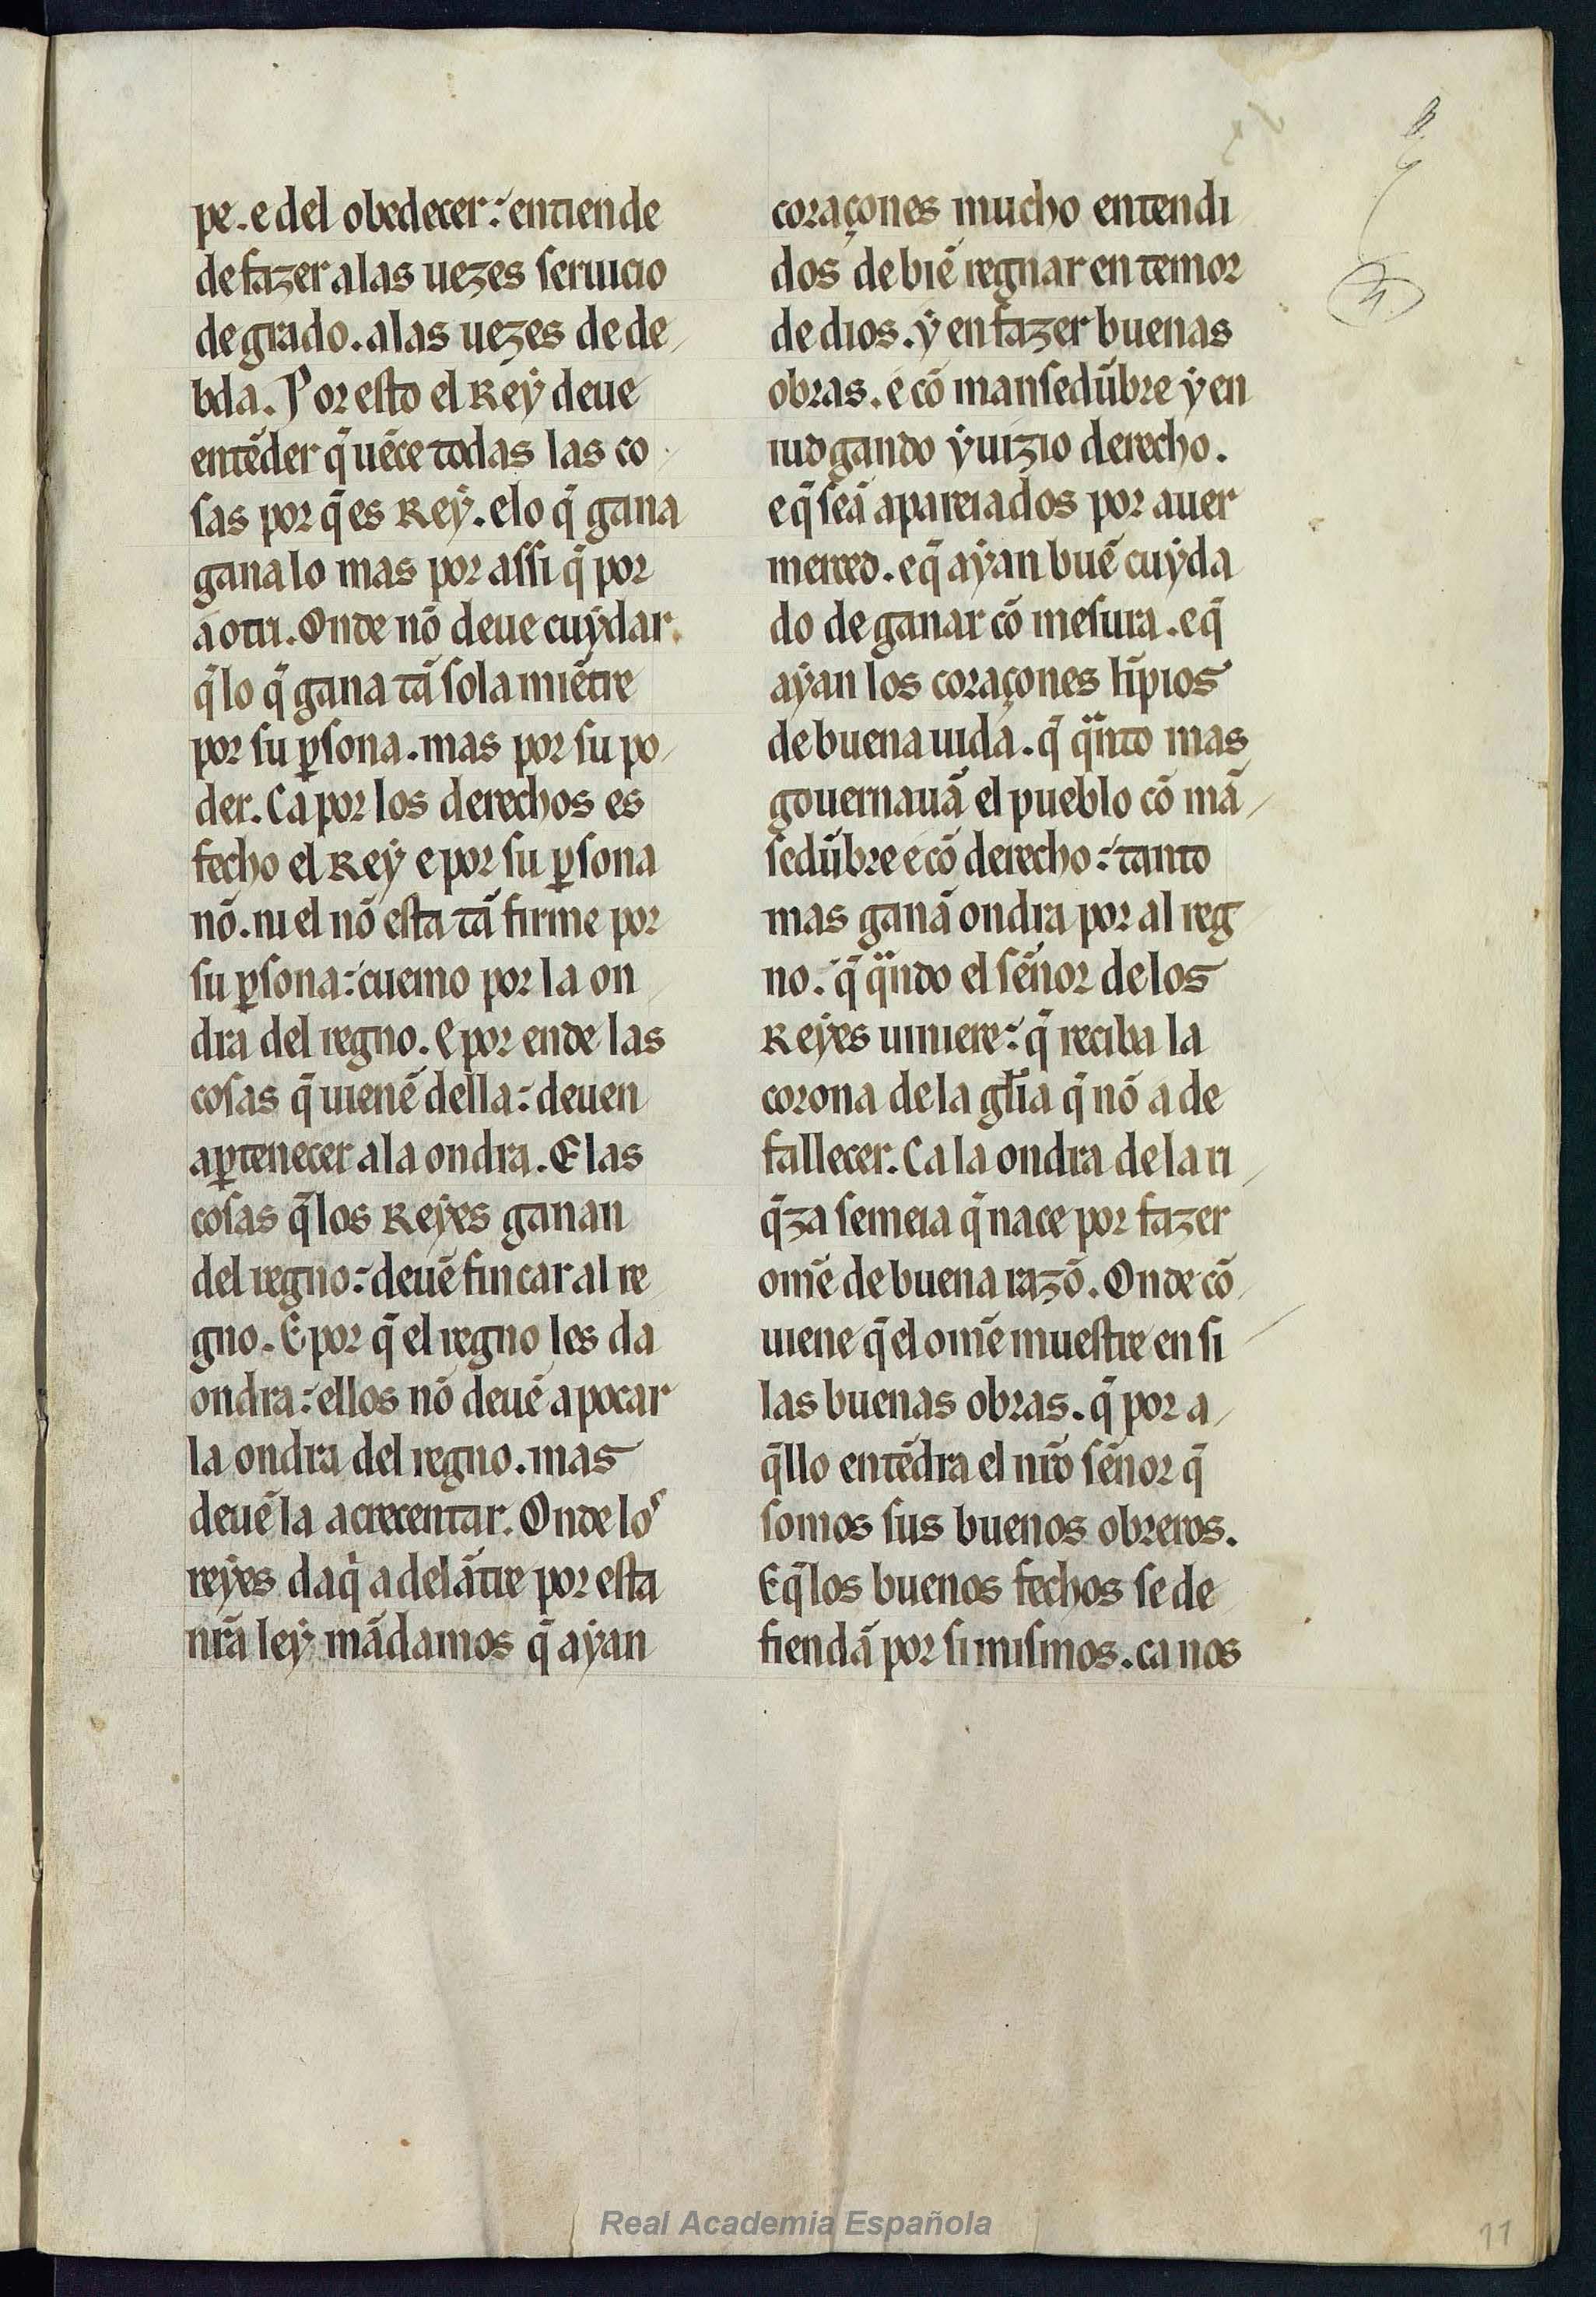 pe. e del obedecer: entiende
de fazer alas uezes seruicio
de grado. alas uezes de de
bda. Por esto el Rey deue
entēder q̄ uēce todas las co
sas por q̄ es Rey. e lo q̄ gana
gana lo mas por assi q̄ por
a otri. Onde nō deue cuydar
q̄ lo q̄ gana tā sola miētre
por su ꝑsona. mas por su po
der. Ca por los derechos es
fecho el Rey e por su ꝑsona
nō. ni el nō esta tā firme por
su ꝑsona: cuemo por la on
dra del regno. E por ende las
cosas q̄ uienē della: deuen
aꝑtenecer ala ondra. E las
cosas q̄ los Reyes ganan
del regno: deuē fincar al re
gno. E por q̄ el regno les da
ondra: ellos nō deuē apocar
la ondra del regno. mas
deuē la acrecentar. Onde los
reyes daq̄ adelātre por esta
nr̄a ley mādamos q̄ ayan
coraçones mucho entendi
dos de biē regnar en temor
de dios. y en fazer buenas
obras. e cō mansedūbre y en
iudgando yuizio derecho.
e q̄ seā apareiados por auer
merced. e q̄ ayan buē cuyda
do de ganar cō mesura. e q̄
ayan los coraçones līpios
de buena uida. q̄ q̄nto mas
gouernauā el pueblo cō mā
sedūbre e cō derecho: tanto
mas ganā ondra por al reg
no. q̄ q̄ndo el sēnor de los
Reyes uiniere: q̄ reciba la
corona de la gl̄ia q̄ nō a de
fallecer. Ca la ondra de la ri
q̄za semeia q̄ nace por fazer
omē de buena razō. Onde cō
uiene q̄ el omē muestre en si
las buenas obras. q̄ por a
q̄llo entēdra el nr̄o sēnor q̄
somos sus buenos obreros.
E q̄ los buenos fechos se de
fiendā por si mismos. ca nos
Real Academia Española
11